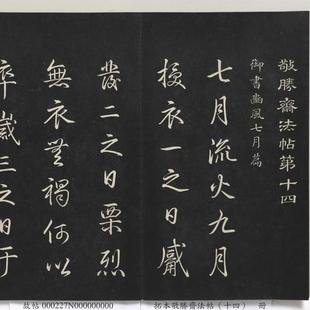 敬勝齋法帖第十四
御書豳風七月篇
七月流火九月
授衣一之日觱
發二之日栗烈
無衣無褐何以
卒歲三之日于
故帖 000227N000000000
拓本敬勝齋法帖（十四） 冊